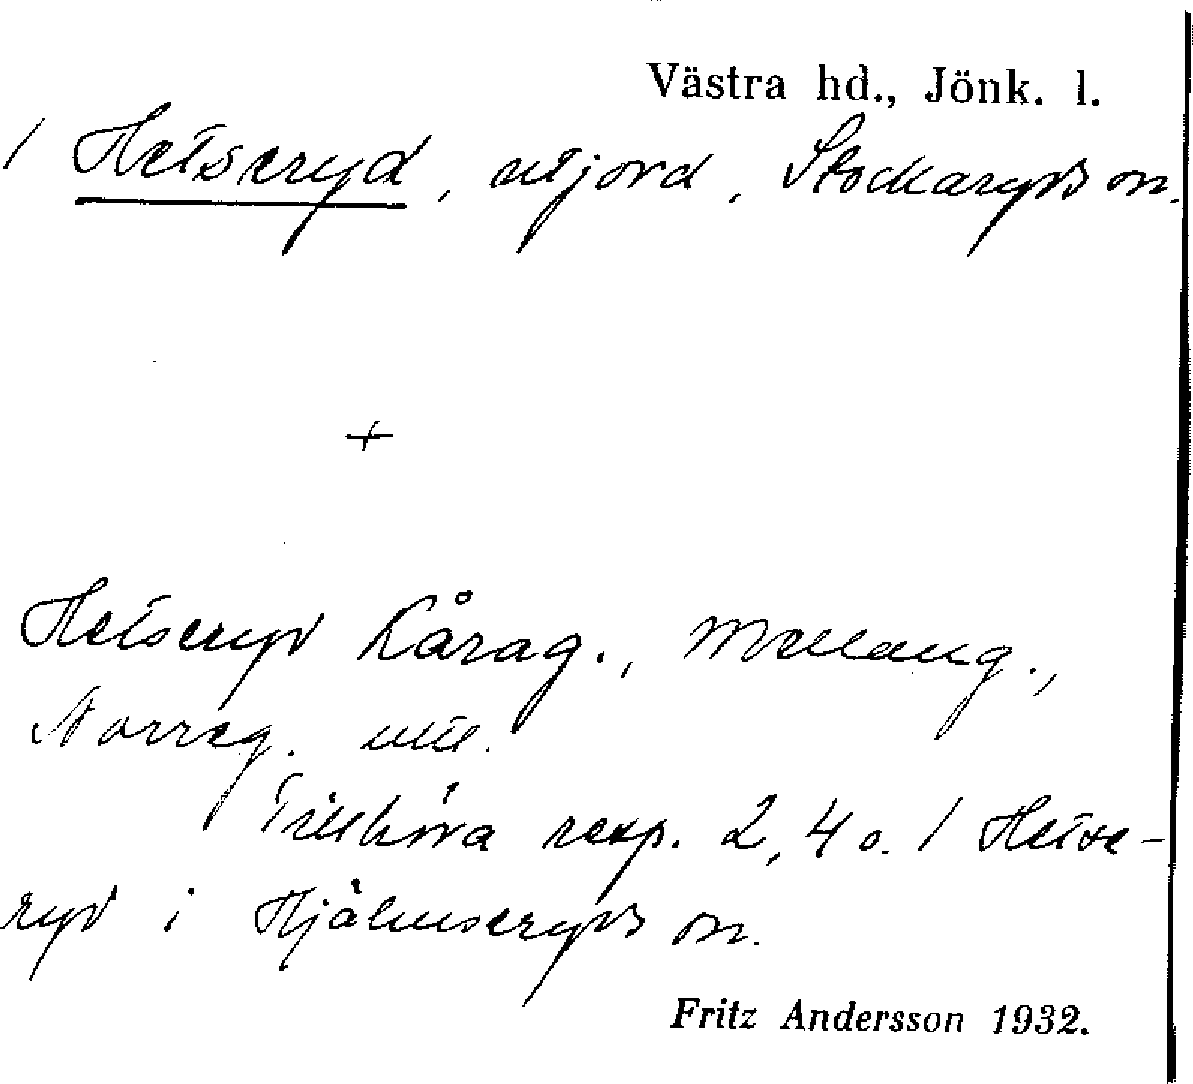 Västra hd., Jönk. l.
/ Hetseryd, utjord, Stockaryds sn.
+
Hetseryd Kårag., Mellang.,
Norreg.
Tillhöra resp. 2, 4 o. 1 Hetse-
ryd i Hjälmseryds sn.
Fritz Andersson 1932.